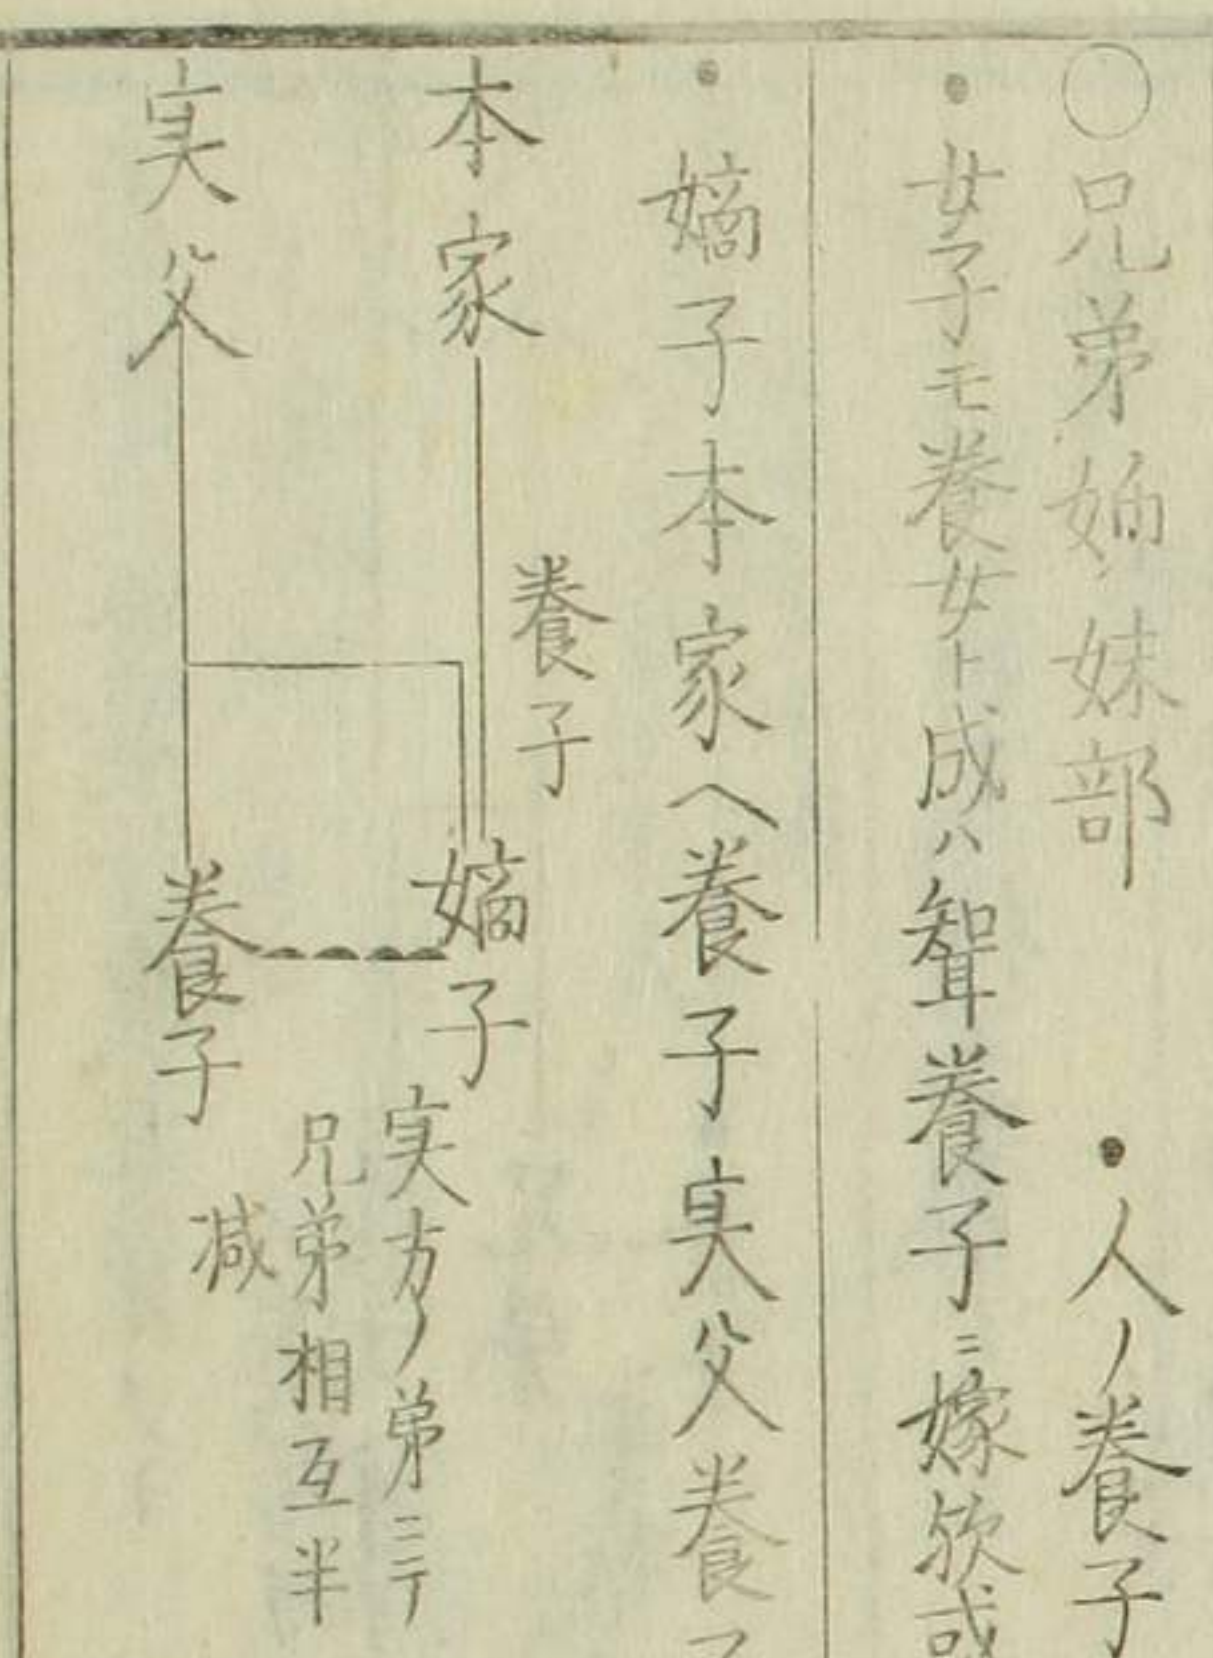 〇兄弟姉妹部 ・人ノ養子
・女子モ養女ト成ハ聟養子ニ嫁欤或
・嫡子本家ヘ養子実父養子
養子
本家 嫡子
実方ノ弟ニテ
兄弟相互半
减
実父 養子